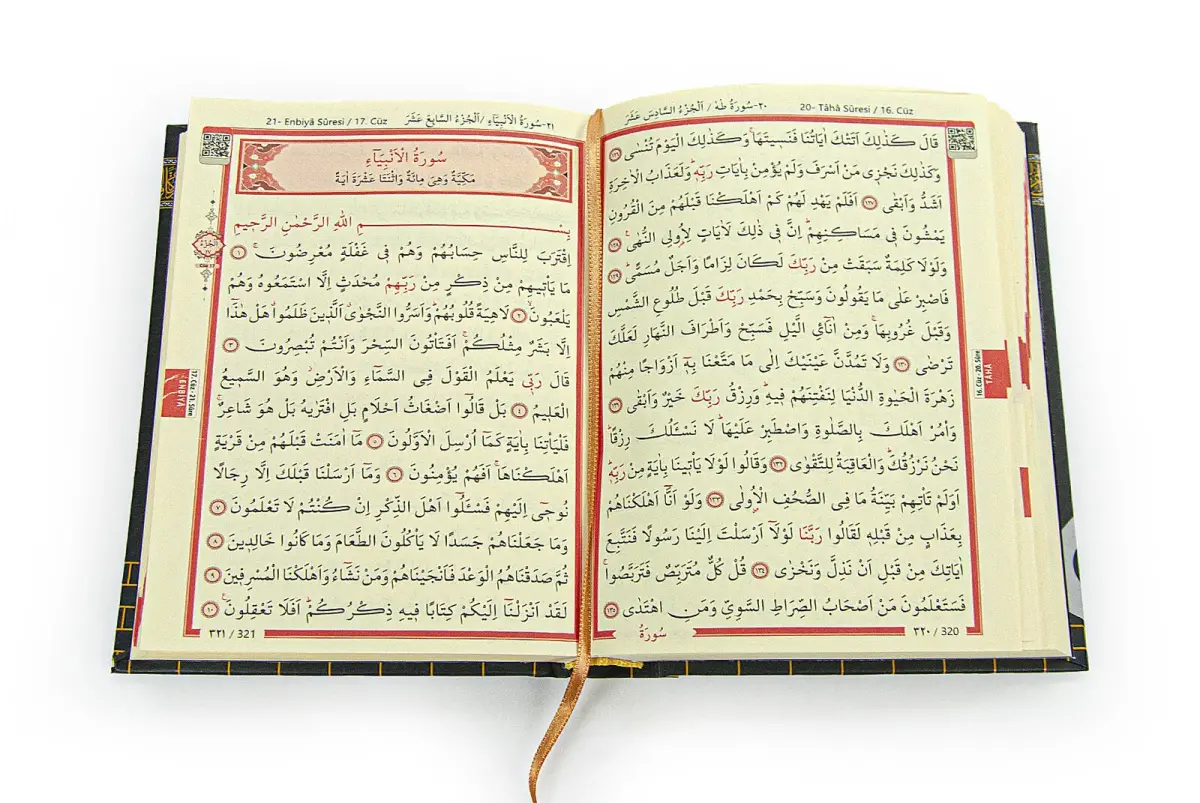 ٢٠-سُورَةُ طٰهٰ / اَلْجُزْءُ السَّادِسَ عَشَرَ 20- Tâhâ Sûresi / 16. Cüz
قَالَ كَذٰلِكَ اَتَتْكَ اٰيَاتُنَا فَنَسٖيتَهَاۚ وَكَذٰلِكَ الْيَوْمَ تُنْسٰى ١٢٦
وَكَذٰلِكَ نَجْزٖى مَنْ اَسْرَفَ وَلَمْ يُؤْمِنْ بِاٰيَاتِ رَبِّهٖۜ وَلَعَذَابُ الْاٰخِرَةِ
اَشَدُّ وَاَبْقٰى ١٢٧ اَفَلَمْ يَهْدِ لَهُمْ كَمْ اَهْلَكْنَا قَبْلَهُمْ مِنَ الْقُرُونِ
يَمْشُونَ فٖى مَسَاكِنِهِمْۜ اِنَّ فٖى ذٰلِكَ لَاٰيَاتٍ لِاُولِى النُّهٰى۟ ١٢٨
وَلَوْلَا كَلِمَةٌ سَبَقَتْ مِنْ رَبِّكَ لَكَانَ لِزَامًا وَاَجَلٌ مُسَمًّىۜ ١٢٩
فَاصْبِرْ عَلٰى مَا يَقُولُونَ وَسَبِّحْ بِحَمْدِ رَبِّكَ قَبْلَ طُلُوعِ الشَّمْسِ
وَقَبْلَ غُرُوبِهَاۚ وَمِنْ اٰنَآئِ الَّيْلِ فَسَبِّحْ وَاَطْرَافَ النَّهَارِ لَعَلَّكَ
تَرْضٰى ١٣٠ وَلَا تَمُدَّنَّ عَيْنَيْكَ اِلٰى مَا مَتَّعْنَا بِهٖٓ اَزْوَاجًا مِنْهُمْ
زَهْرَةَ الْحَيٰوةِ الدُّنْيَا لِنَفْتِنَهُمْ فٖيهِۜ وَرِزْقُ رَبِّكَ خَيْرٌ وَاَبْقٰى ١٣١
وَأْمُرْ اَهْلَكَ بِالصَّلٰوةِ وَاصْطَبِرْ عَلَيْهَاۜ لَا نَسْـَٔلُكَ رِزْقًاۜ
نَحْنُ نَرْزُقُكَۜ وَالْعَاقِبَةُ لِلتَّقْوٰى ١٣٢ وَقَالُوا لَوْلَا يَأْتٖينَا بِاٰيَةٍ مِنْ رَبِّهٖۜ
اَوَلَمْ تَأْتِهِمْ بَيِّنَةُ مَا فِى الصُّحُفِ الْاُولٰى ١٣٣ وَلَوْ اَنَّٓا اَهْلَكْنَاهُمْ
بِعَذَابٍ مِنْ قَبْلِهٖ لَقَالُوا رَبَّنَا لَوْلَٓا اَرْسَلْتَ اِلَيْنَا رَسُولًا فَنَتَّبِعَ
اٰيَاتِكَ مِنْ قَبْلِ اَنْ نَذِلَّ وَنَخْزٰى ١٣٤ قُلْ كُلٌّ مُتَرَبِّصٌ فَتَرَبَّصُواۚ
فَسَتَعْلَمُونَ مَنْ اَصْحَابُ الصِّرَاطِ السَّوِىِّ وَمَنِ اهْتَدٰى ١٣٥
سُورَةُ
٣٢٠ / 320
16. Cüz - 20. Sûre
TÂHÂ
21- Enbiyâ Sûresi / 17. Cüz ٢١-سُورَةُ الْاَنْبِيَاءِ / اَلْجُزْءُ السَّابِعَ عَشَرَ
سُورَةُ الْاَنْبِيَاءِ
مَكِّيَّةٌ وَهِىَ مِائَةٌ وَاثْنَتَا عَشْرَةَ اٰيَةً
بِسْمِ اللّٰهِ الرَّحْمٰنِ الرَّحٖيمِ
اِقْتَرَبَ لِلنَّاسِ حِسَابُهُمْ وَهُمْ فٖى غَفْلَةٍ مُعْرِضُونَۚ ١
مَا يَأْتٖيهِمْ مِنْ ذِكْرٍ مِنْ رَبِّهِمْ مُحْدَثٍ اِلَّا اسْتَمَعُوهُ وَهُمْ
يَلْعَبُونَۙ ٢ لَاهِيَةً قُلُوبُهُمْۜ وَاَسَرُّوا النَّجْوٰىۗ اَلَّذٖينَ ظَلَمُواۗ هَلْ هٰذَٓا
اِلَّا بَشَرٌ مِثْلُكُمْۚ اَفَتَأْتُونَ السِّحْرَ وَاَنْتُمْ تُبْصِرُونَ ٣
قَالَ رَبّٖى يَعْلَمُ الْقَوْلَ فِى السَّمَٓاءِ وَالْاَرْضِۘ وَهُوَ السَّمٖيعُ
الْعَلٖيمُ ٤ بَلْ قَالُٓوا اَضْغَاثُ اَحْلَامٍ بَلِ افْتَرٰيهُ بَلْ هُوَ شَاعِرٌۚ
فَلْيَأْتِنَا بِاٰيَةٍ كَمَٓا اُرْسِلَ الْاَوَّلُونَ ٥ مَٓا اٰمَنَتْ قَبْلَهُمْ مِنْ قَرْيَةٍ
اَهْلَكْنَاهَاۚ اَفَهُمْ يُؤْمِنُونَ ٦ وَمَٓا اَرْسَلْنَا قَبْلَكَ اِلَّا رِجَالًا
نُوحٖٓى اِلَيْهِمْ فَسْـَٔلُٓوا اَهْلَ الذِّكْرِ اِنْ كُنْتُمْ لَا تَعْلَمُونَ ٧
وَمَا جَعَلْنَاهُمْ جَسَدًا لَا يَأْكُلُونَ الطَّعَامَ وَمَا كَانُوا خَالِدٖينَ ٨
ثُمَّ صَدَقْنَاهُمُ الْوَعْدَ فَاَنْجَيْنَاهُمْ وَمَنْ نَشَٓاءُ وَاَهْلَكْنَا الْمُسْرِفٖينَ ٩
لَقَدْ اَنْزَلْنَٓا اِلَيْكُمْ كِتَابًا فٖيهِ ذِكْرُكُمْۜ اَفَلَا تَعْقِلُونَ۟ ١٠
٣٢١ / 321
اَلْجُزْءُ
17. Cüz - 21. Sûre
ENBİYÂ